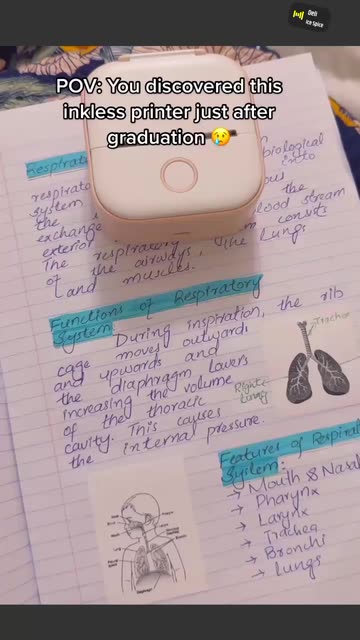 Deli
Ice Spice
POV: You discovered this
inkless printer just after
graduation 😢
biological
respirato
system
into
the
the
exchange
blood stream
exterior
The respiratory
consists
of the airways, the Lungs
and muscles.
Functions of Respiratory
System:
During inspiration, the rib
cage moves outwards
and upwards and
the diaphragm lowers
increasing the volume
of the thorack
cavity. This causes
the internal pressure.
Trachea
Right
Lung
Features of Respirat
System:
→ Mouth & Nasal
→ Pharynx
→ Larynx
→ Trachea
→ Bronchi
→ Lungs